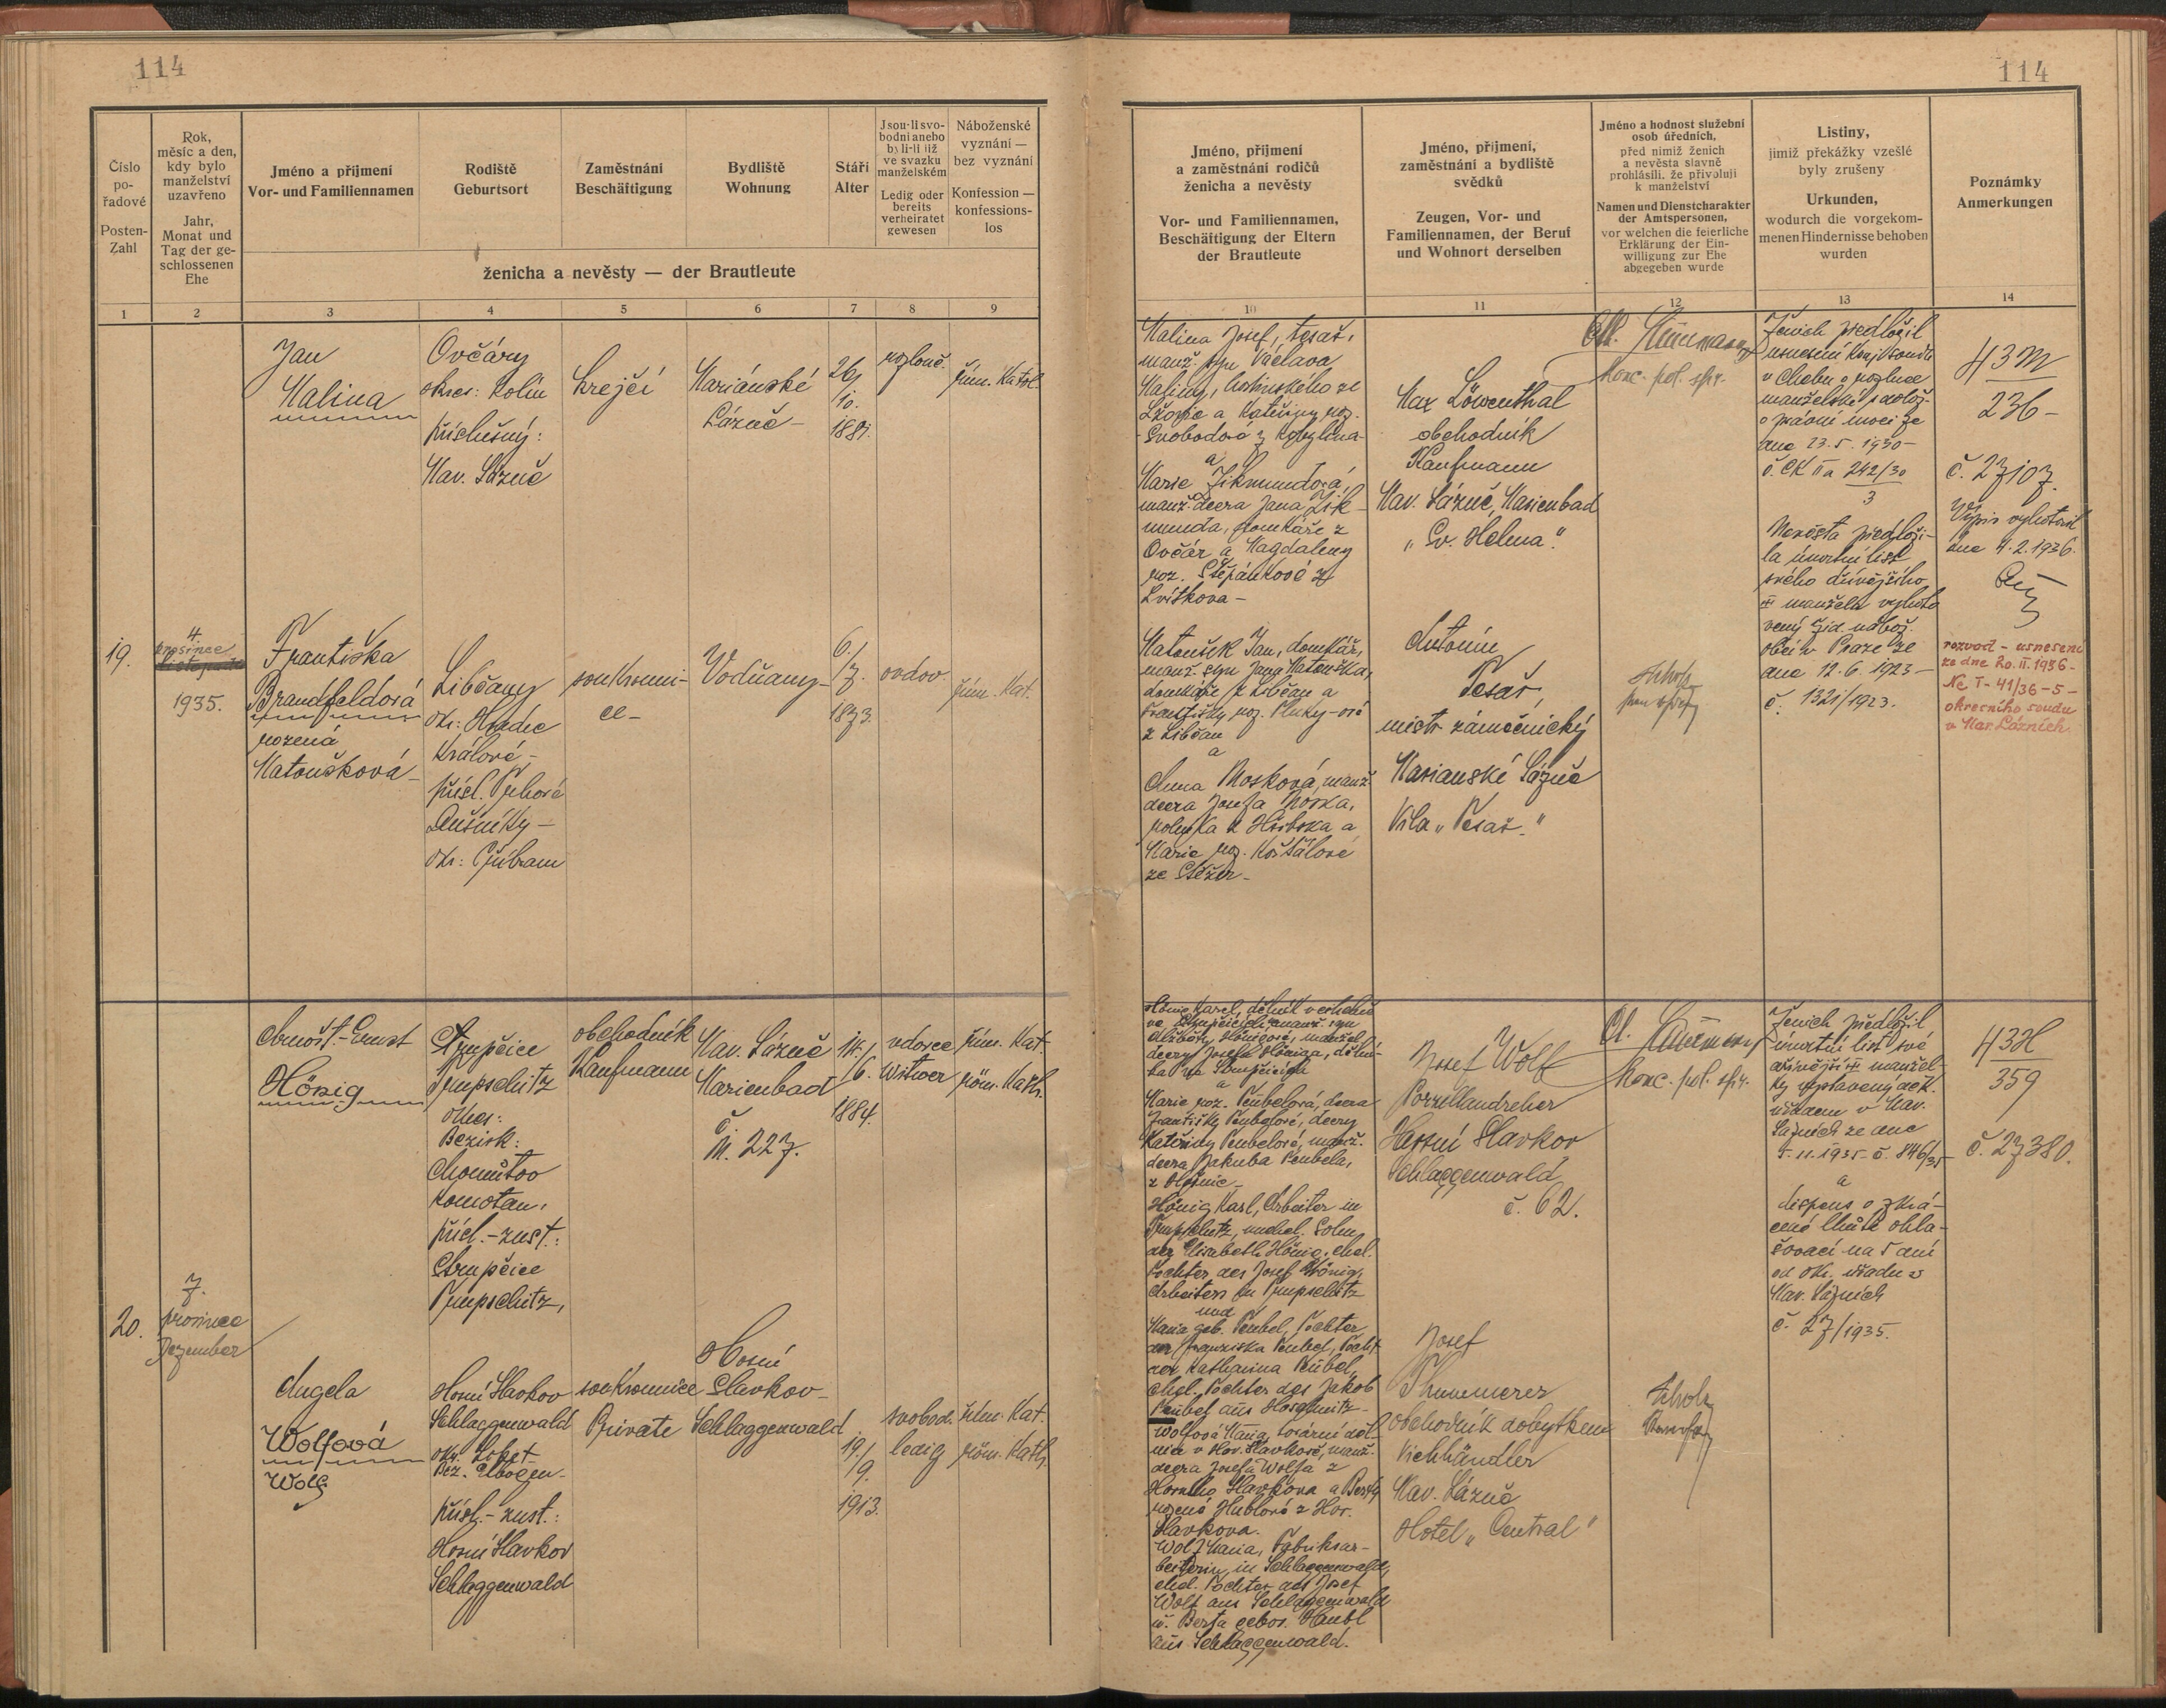 114
114
Číslo
po-
řadové
Posten-
Zahl
Rok,
měsíc a den,
kdy bylo
manželství
uzavřeno
Jahr,
Monat und
Tag der ge-
schlossenen
Ehe
Jméno a příjmení
Vor- und Familiennamen
Rodiště
Geburtsort
Zaměstnání
Beschäftigung
Bydliště
Wohnung
Stáří
Alter
Jsou-li svo-
bodni anebo
byli-li již
ve svazku
manželském
Ledig oder
bereits
verheiratet
gewesen
Náboženské
vyznání —
bez vyznání
Konfession —
konfessions-
los
ženicha a nevěsty — der Brautleute
Jméno, příjmení
a zaměstnání rodičů
ženicha a nevěsty
Vor- und Familiennamen,
Beschäftigung der Eltern
der Brautleute
Jméno, příjmení,
zaměstnání a bydliště
svědků
Zeugen, Vor- und
Familiennamen, der Beruf
und Wohnort derselben
Jméno a hodnost služební
osob úředních,
před nimiž ženich
a nevěsta slavně
prohlásili, že přivolují
k manželství
Namen und Dienstcharakter
der Amtspersonen,
vor welchen die feierliche
Erklärung der Ein-
willigung zur Ehe
abgegeben wurde
Listiny,
jimiž překážky vzešlé
byly zrušeny
Urkunden,
wodurch die vorgekom-
menen Hindernisse behoben
wurden
Poznámky
Anmerkungen
1 2 3 4 5 6 7 8 9 10 11 12 13 14
19.
4.
prosince
1935.
Jan
Malina
Ovčáry
okres: Kolín
příslušný:
Mar. Lázně
krejčí
Mariánské
Lázně -
26/
/10.
1887.
rozlouč.
řím. katol.
Františka
Brandfeldová
rozená
Matoušková
Libčany
okr: Hradec
Králové -
přísl. Trhové
Dušníky -
okr: Příbram
soukromni-
ce -
Vodňany -
6./
/7.
1873.
ovdov.
řím. kat.
Malina Josef, tesař,
manž. syn Václava
Maliny,
a Kateřiny roz.
Svobodové z
a
Marie Zikmundová,
manž. dcera Jana Zik-
munda, domkáře z
Ovčár a Magdaleny
roz. Štěpánkové z
Matoušek Jan, domkář,
manž. syn Jana Matouška,
domkáře z Libčan a
Františky roz.
z Libčan
a
Anna Mosková, manž.
dcera Josefa Moska,
rolníka z a
Marie roz. Košťálové
ze Stěžer -
Max Löwenthal
obchodník
Kaufmann
Mar. Lázně, Marienbad
„Sv. Helena."
Antonín
Tesař,
mistr zámečnický
Marianské Lázně
Vila „Tesař."
konc. pol. spr.
Ženich předložil
usnesení kraj. soudu
v Chebu o rozluce
manželské s dolož.
o právní moci ze
dne 23.5.1930 -
č. CK II a 242/30
3
Nevěsta předloži-
la úmrtní list
svého dřívějšího
manžela vyhoto
vený žid. nábož.
obcí v Praze ze
dne 12.6.1923 -
č. 1321/1923.
43M
236 -
č. 27107.
Výpis vyhotovil
dne 4.2.1936.
rozvod - usnesení
ze dne 20.II.1936 -
Nc I - 41/36 - 5 -
okresního soudu
v Mar. Lázních.
20.
7.
prosince
Dezember
Arnošt - Ernst
Hönig
Strupčice
Trupschitz
okres:
Bezirk:
Chomútov
Komotau,
přísl. - zust.:
Strupčice
Trupschitz,
obchodník
Kaufmann
Mar. Lázně
Marienbad
č.
N. 227.
14./
/6.
1884.
vdovec
Witwer
řím. kat.
röm. kath.
Angela
Wolfová
Wolf
Horní Slavkov
Schlaggenwald
okr. Loket -
Bez. Elbogen -
přísl. - zust.:
Horní Slavkov
Schlaggenwald
soukromnice
Private
Horní
Slavkov -
Schlaggenwald
19./
/9.
1913.
svobod.
ledig
řím. kat.
röm. kath.
Hönig Karel, dělník
Alžběty Hönigové, manžel.
dcery Josefa Höniga, dělní-
ka ve Strupčicích
a
Marie roz. Peubelová, dcera
Františky Peubelové, dcery
Kateřiny Peubelové, manž.
dcera Jakuba Peubela,
Hönig Karl, Arbeiter in
Trupschitz, unehel. Sohn
der Elisabeth Hönig, ehel.
Tochter des Josef Hönig,
Arbeiters in Trupschitz
und
Maria geb. Peubel, Tochter
der Franziska Peubel, Tocht.
der Katharina Peubel,
ehel. Tochter des Jakob
Peubel aus
Wolfová Marie, tovární děl-
nice v Hor. Slavkově, manž.
dcera Josefa Wolfa z
Horního Slavkova a Berty
rozené Hublové z Hor.
Slavkova.
Wolf Maria, Fabriksar-
beiterin in Schlaggenwald,
ehel. Tochter des Josef
Wolf aus Schlaggenwald
u. Berta gebor. Haubl
aus Schlaggenwald.
Josef Wolf
Porzellandreher
Horní Slavkov
Schlaggenwald
č. 62.
Josef
Thummerer
obchodník dobytkem
Viehhändler
Mar. Lázně
Hotel „Central"
konc. pol. spr.
Ženich předložil
úmrtní list své
dřívější manžel-
ky vystavený děk.
úřadem v Mar.
Lázních ze dne
5.11.1935 č. 846/35
a
dispens o zkrá-
cené lhůtě ohla-
šovací na 5 dní
od okr. úřadu v
Mar. Lázních
č. 27/1935.
43H
359
č. 27380.